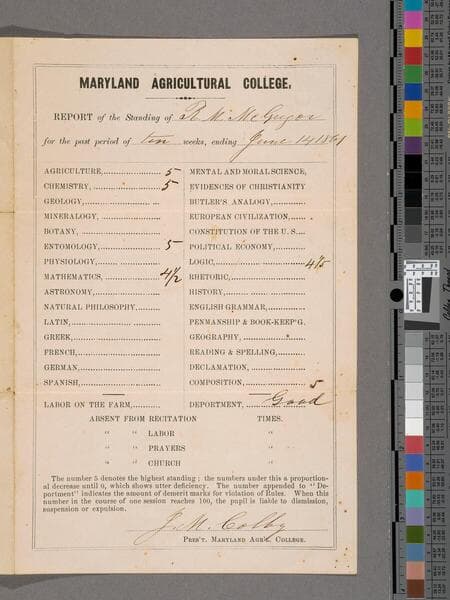 MARYLAND AGRICULTURAL COLLEGE,
REPORT of the Standing of R. M. McGregor
for the past period of ten weeks, ending June 14 1861
AGRICULTURE, 5
CHEMISTRY, 5
GEOLOGY,
MINERALOGY,
BOTANY,
ENTOMOLOGY, 5
PHYSIOLOGY,
MATHEMATICS, 4½
ASTRONOMY,
NATURAL PHILOSOPHY,
LATIN,
GREEK,
FRENCH,
GERMAN,
SPANISH,
LABOR ON THE FARM,
MENTAL AND MORAL SCIENCE,
EVIDENCES OF CHRISTIANITY
BUTLER'S ANALOGY,
EUROPEAN CIVILIZATION,
CONSTITUTION OF THE U. S.
POLITICAL ECONOMY,
LOGIC,
RHETORIC,
HISTORY,
ENGLISH GRAMMAR,
PENMANSHIP & BOOK-KEEP'G.
GEOGRAPHY,
READING & SPELLING,
DECLAMATION,
COMPOSITION, 5
DEPORTMENT, Good
ABSENT FROM RECITATION TIMES.
" " LABOR "
" " PRAYERS "
" " CHURCH "
The number 5 denotes the highest standing; the numbers under this a proportion-
al decrease until 0, which shows utter deficiency. The number appended to "De-
portment" indicates the amount of demerit marks for violation of Rules. When this
number in the course of one session reaches 100, the pupil is liable to dismission,
suspension or expulsion.
J. M. Colby
PRES'T. MARYLAND AGR'L. COLLEGE.